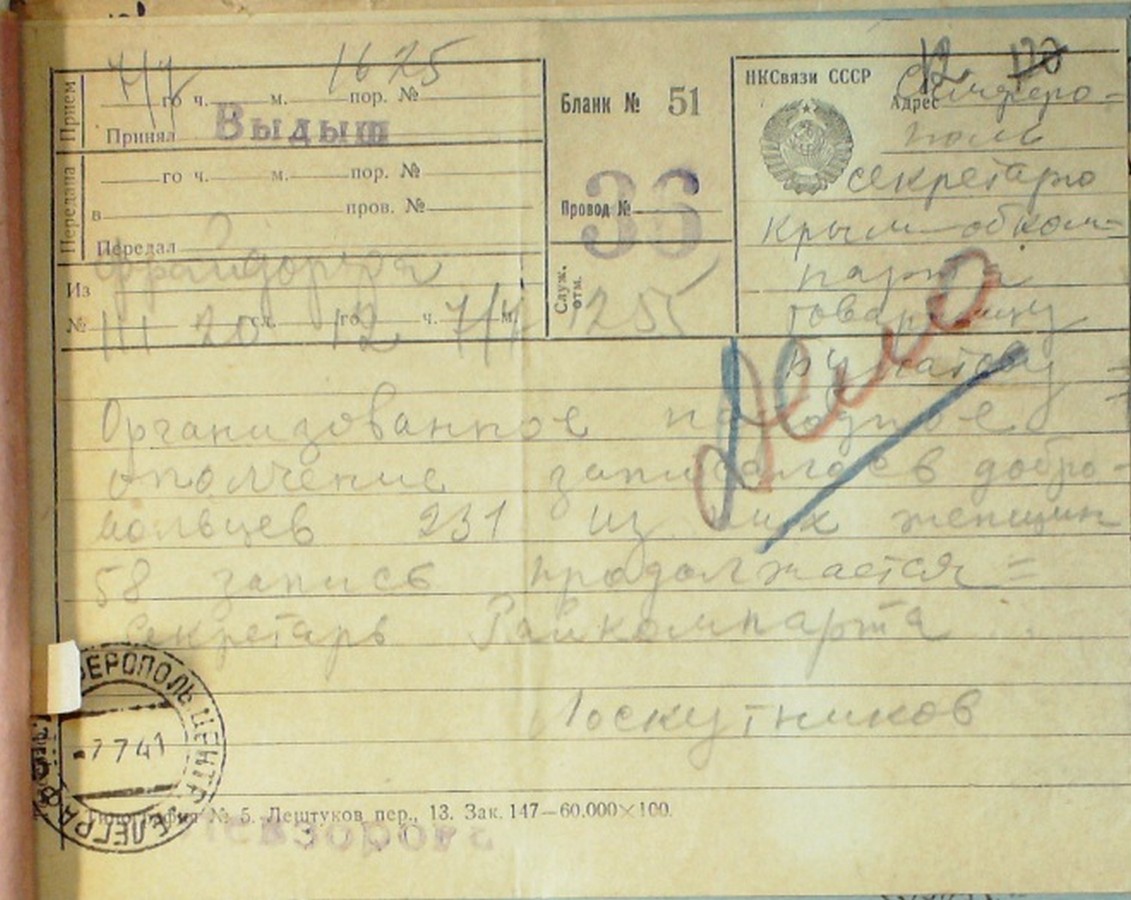 7/7 16 25
Прием
го ч. м. пор. №
Принял Выдыш
Передана
го ч. м. пор. №
в пров. №
Передал
Из Фрайдорфа
№ 111 20 сл. го 12 ч. 7/7 м. 1255
Бланк № 51
Провод № 36
Служ. отм.
НКСвязи СССР
12
Адрес Симферо-
поль
секретарю
Крым обком-
парт
товарищу
Булатову =
Организованное народное
ополчение записалось добро-
вольцев 231 из них женщин
58 запись продолжается =
Секретарь Райкомпарта
Лоскутников
Дело
СИМФЕРОПОЛЬ ЦЕНТР ТЕЛЕГРАФ
-7 7 41
Типография № 5. Лештуков пер., 13. Зак. 147—60.000×100.
Невзорова